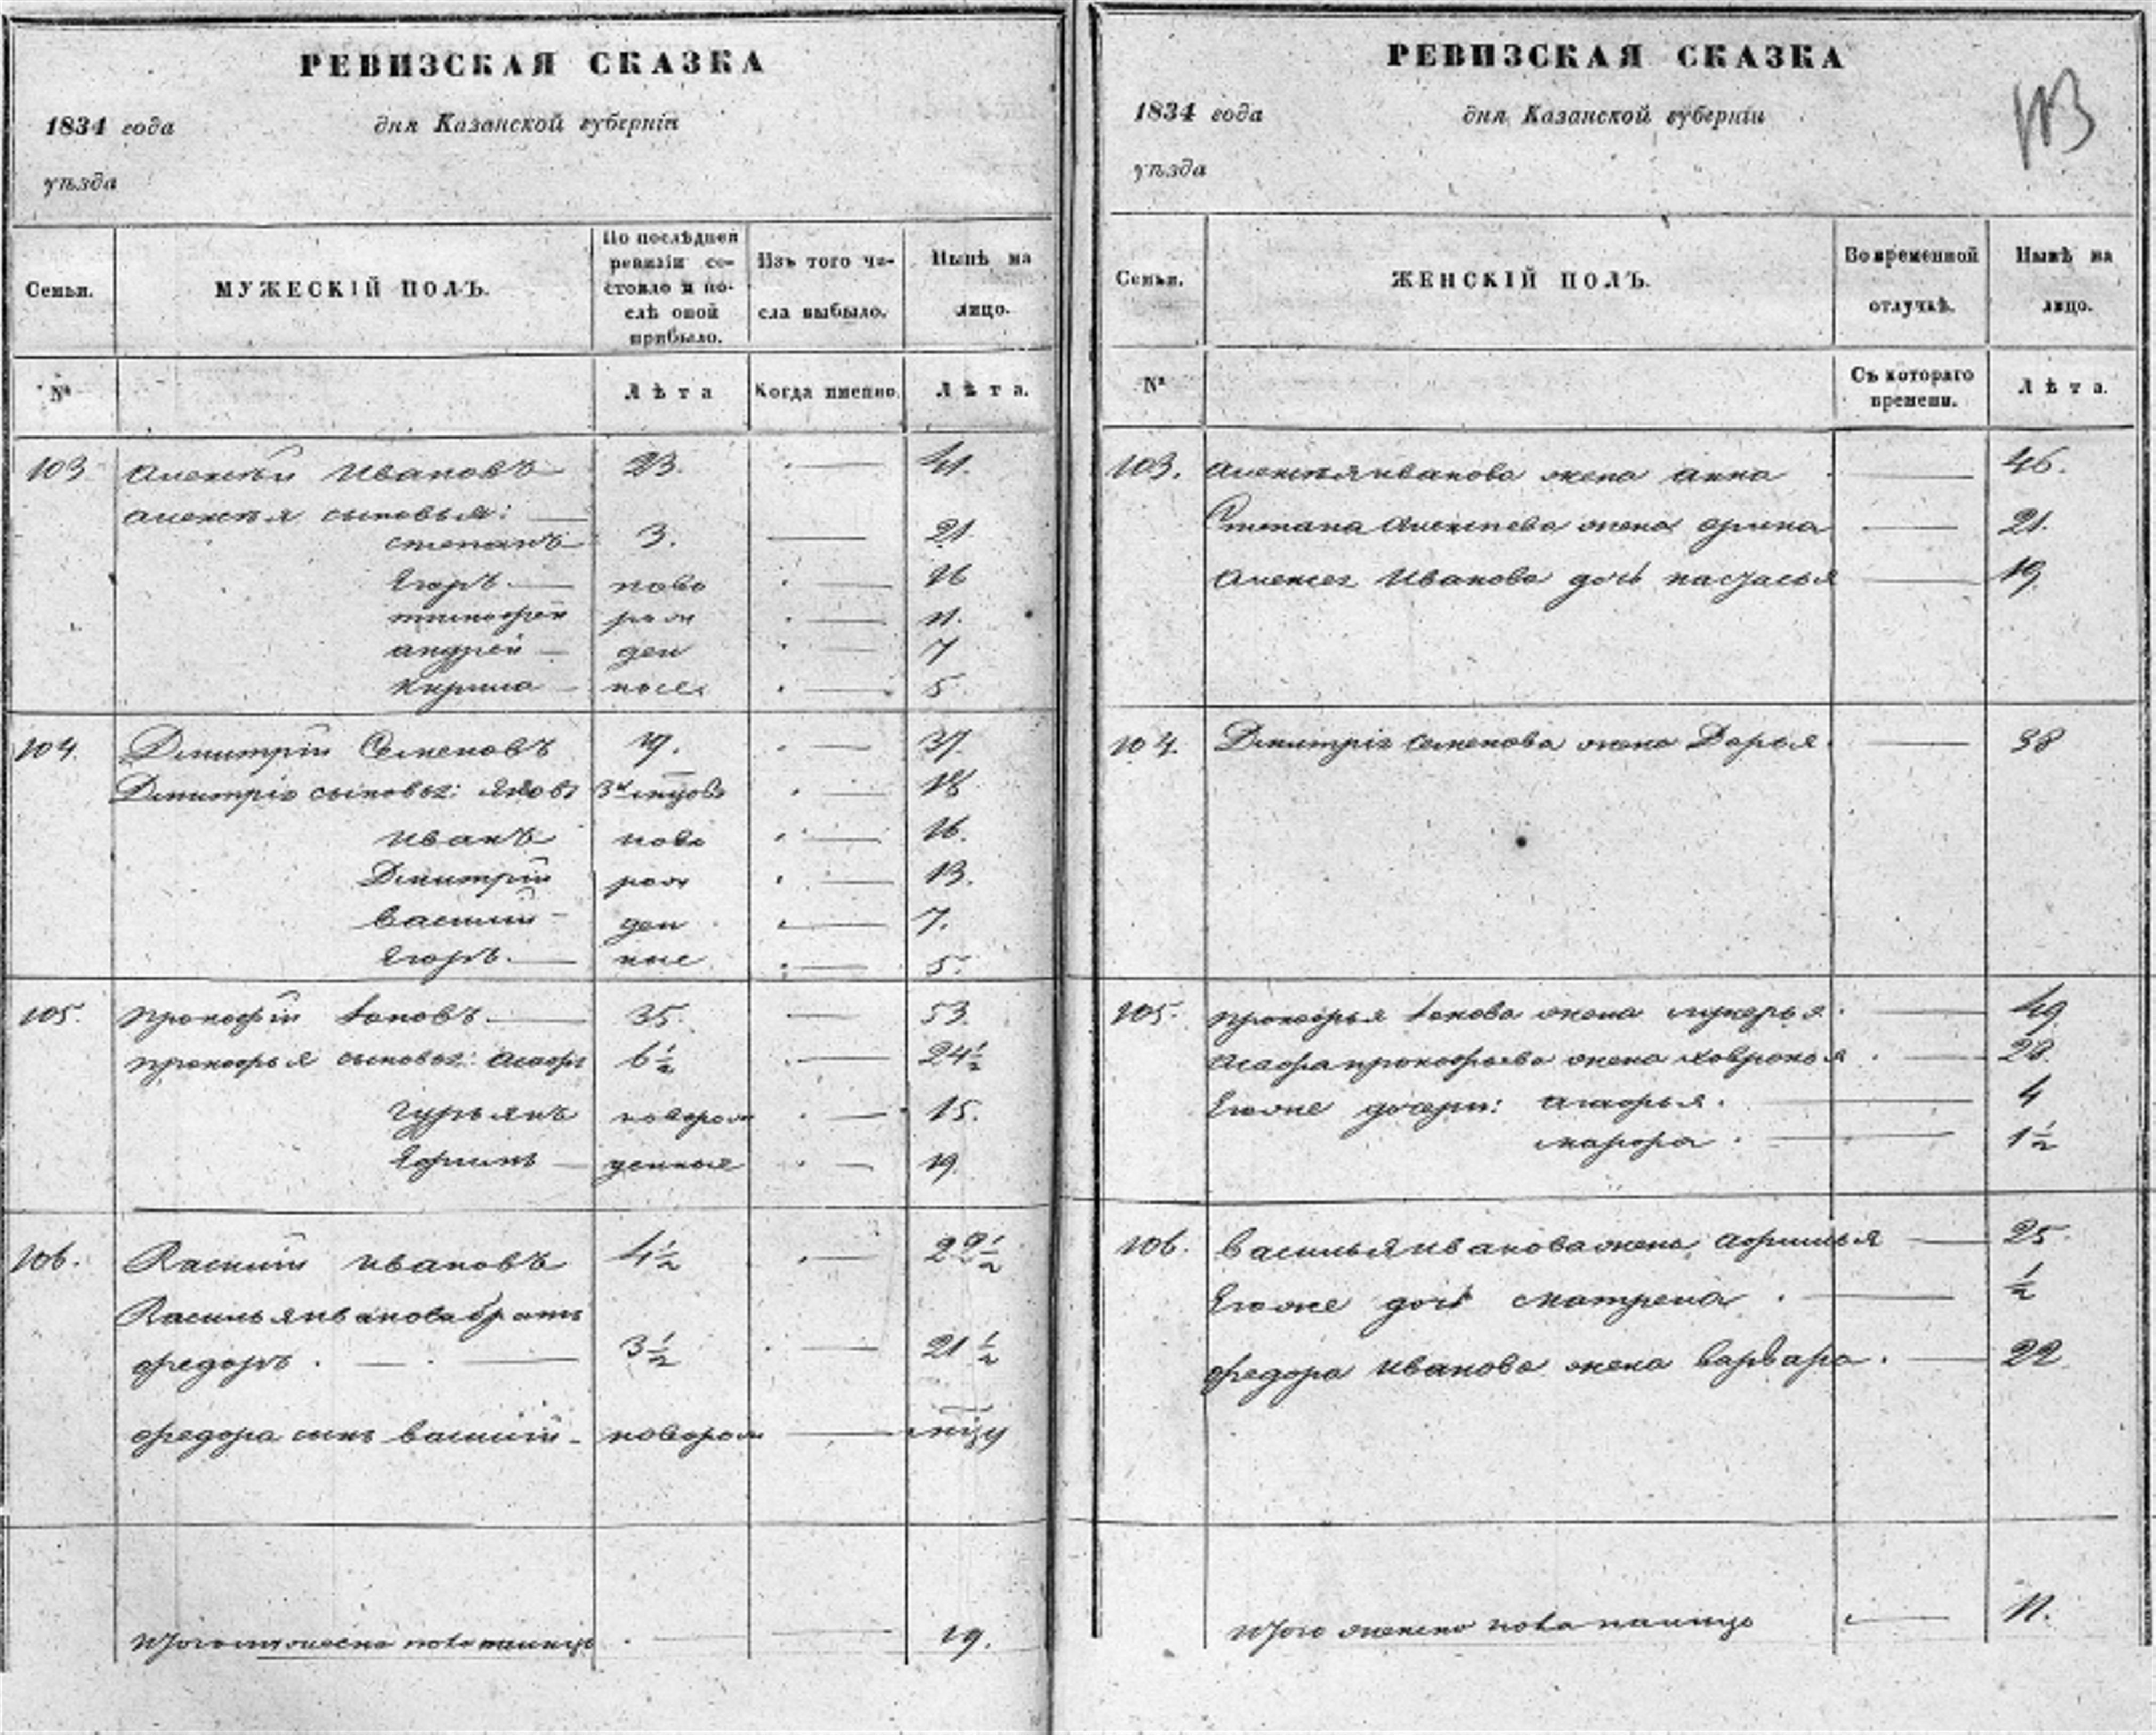 РЕВИЗСКАЯ СКАЗКА
1834 года дня Казанской губерніи
уѣзда
Семьи. МУЖЕСКІЙ ПОЛЪ. По послѣдней ревизіи состояло и послѣ оной прибыло. Изъ того числа выбыло. Нынѣ на лицо.
№ Лѣта Когда именно. Лѣта.
103 Алексѣй Ивановъ 23. 41.
Алексѣя сыновья:
степанъ 3. 21.
Егоръ ново 16
тимофей рож 11.
андрей ден 7
Кирила ные 5
104 Дмитрій Семеновъ 19. 37.
Дмитрія сыновья: яковъ 18
иванъ ново 16.
Дмитрій рож 13.
Василий ден 7.
Егоръ ные 5.
105. прокофій 35. 53.
прокофья сыновья: 6½ 24½
гурьянъ новорож 15.
Ефимъ денные 19.
106. Василій ивановъ 4½ 22½
Василья иванова братъ
федоръ. 3½ 21½
федора сынъ василий новорож
Итого мужеска пола налицо 19.
РЕВИЗСКАЯ СКАЗКА
113
1834 года дня Казанской губерніи
уѣзда
Семьи. ЖЕНСКІЙ ПОЛЪ. Во временной отлучкѣ. Нынѣ на лицо.
№ Съ котораго времени. Лѣта.
103. Алексѣя иванова жена анна 46.
Степана Алексѣева жена орина 21.
Алексея Иванова дочь настасья 19.
104. Дмитрія семенова жена Дарья 38
105. прокофья жена лукерья. 49
прокофьева жена ховронья 28.
Егоже дочери: агафья. 4
марфа. 1½
106. Василья иванова жена 25.
Егоже дочь матрена. ½
федора иванова жена варвара. 22
Итого женска пола налицо 11.